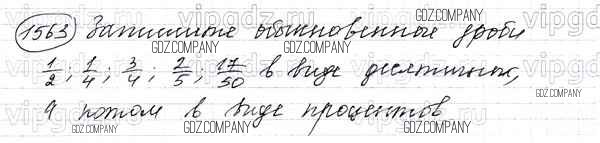 1563 Запишите обыкновенные дроби
1/2; 1/4; 3/4; 2/5; 17/50 в виде десятичных,
а потом в виде процентов
GDZ.COMPANY
GDZ.COMPANY
GDZ.COMPANY
GDZ.COMPANY
GDZ.COMPANY
GDZ.COMPANY
GDZ.COMPANY